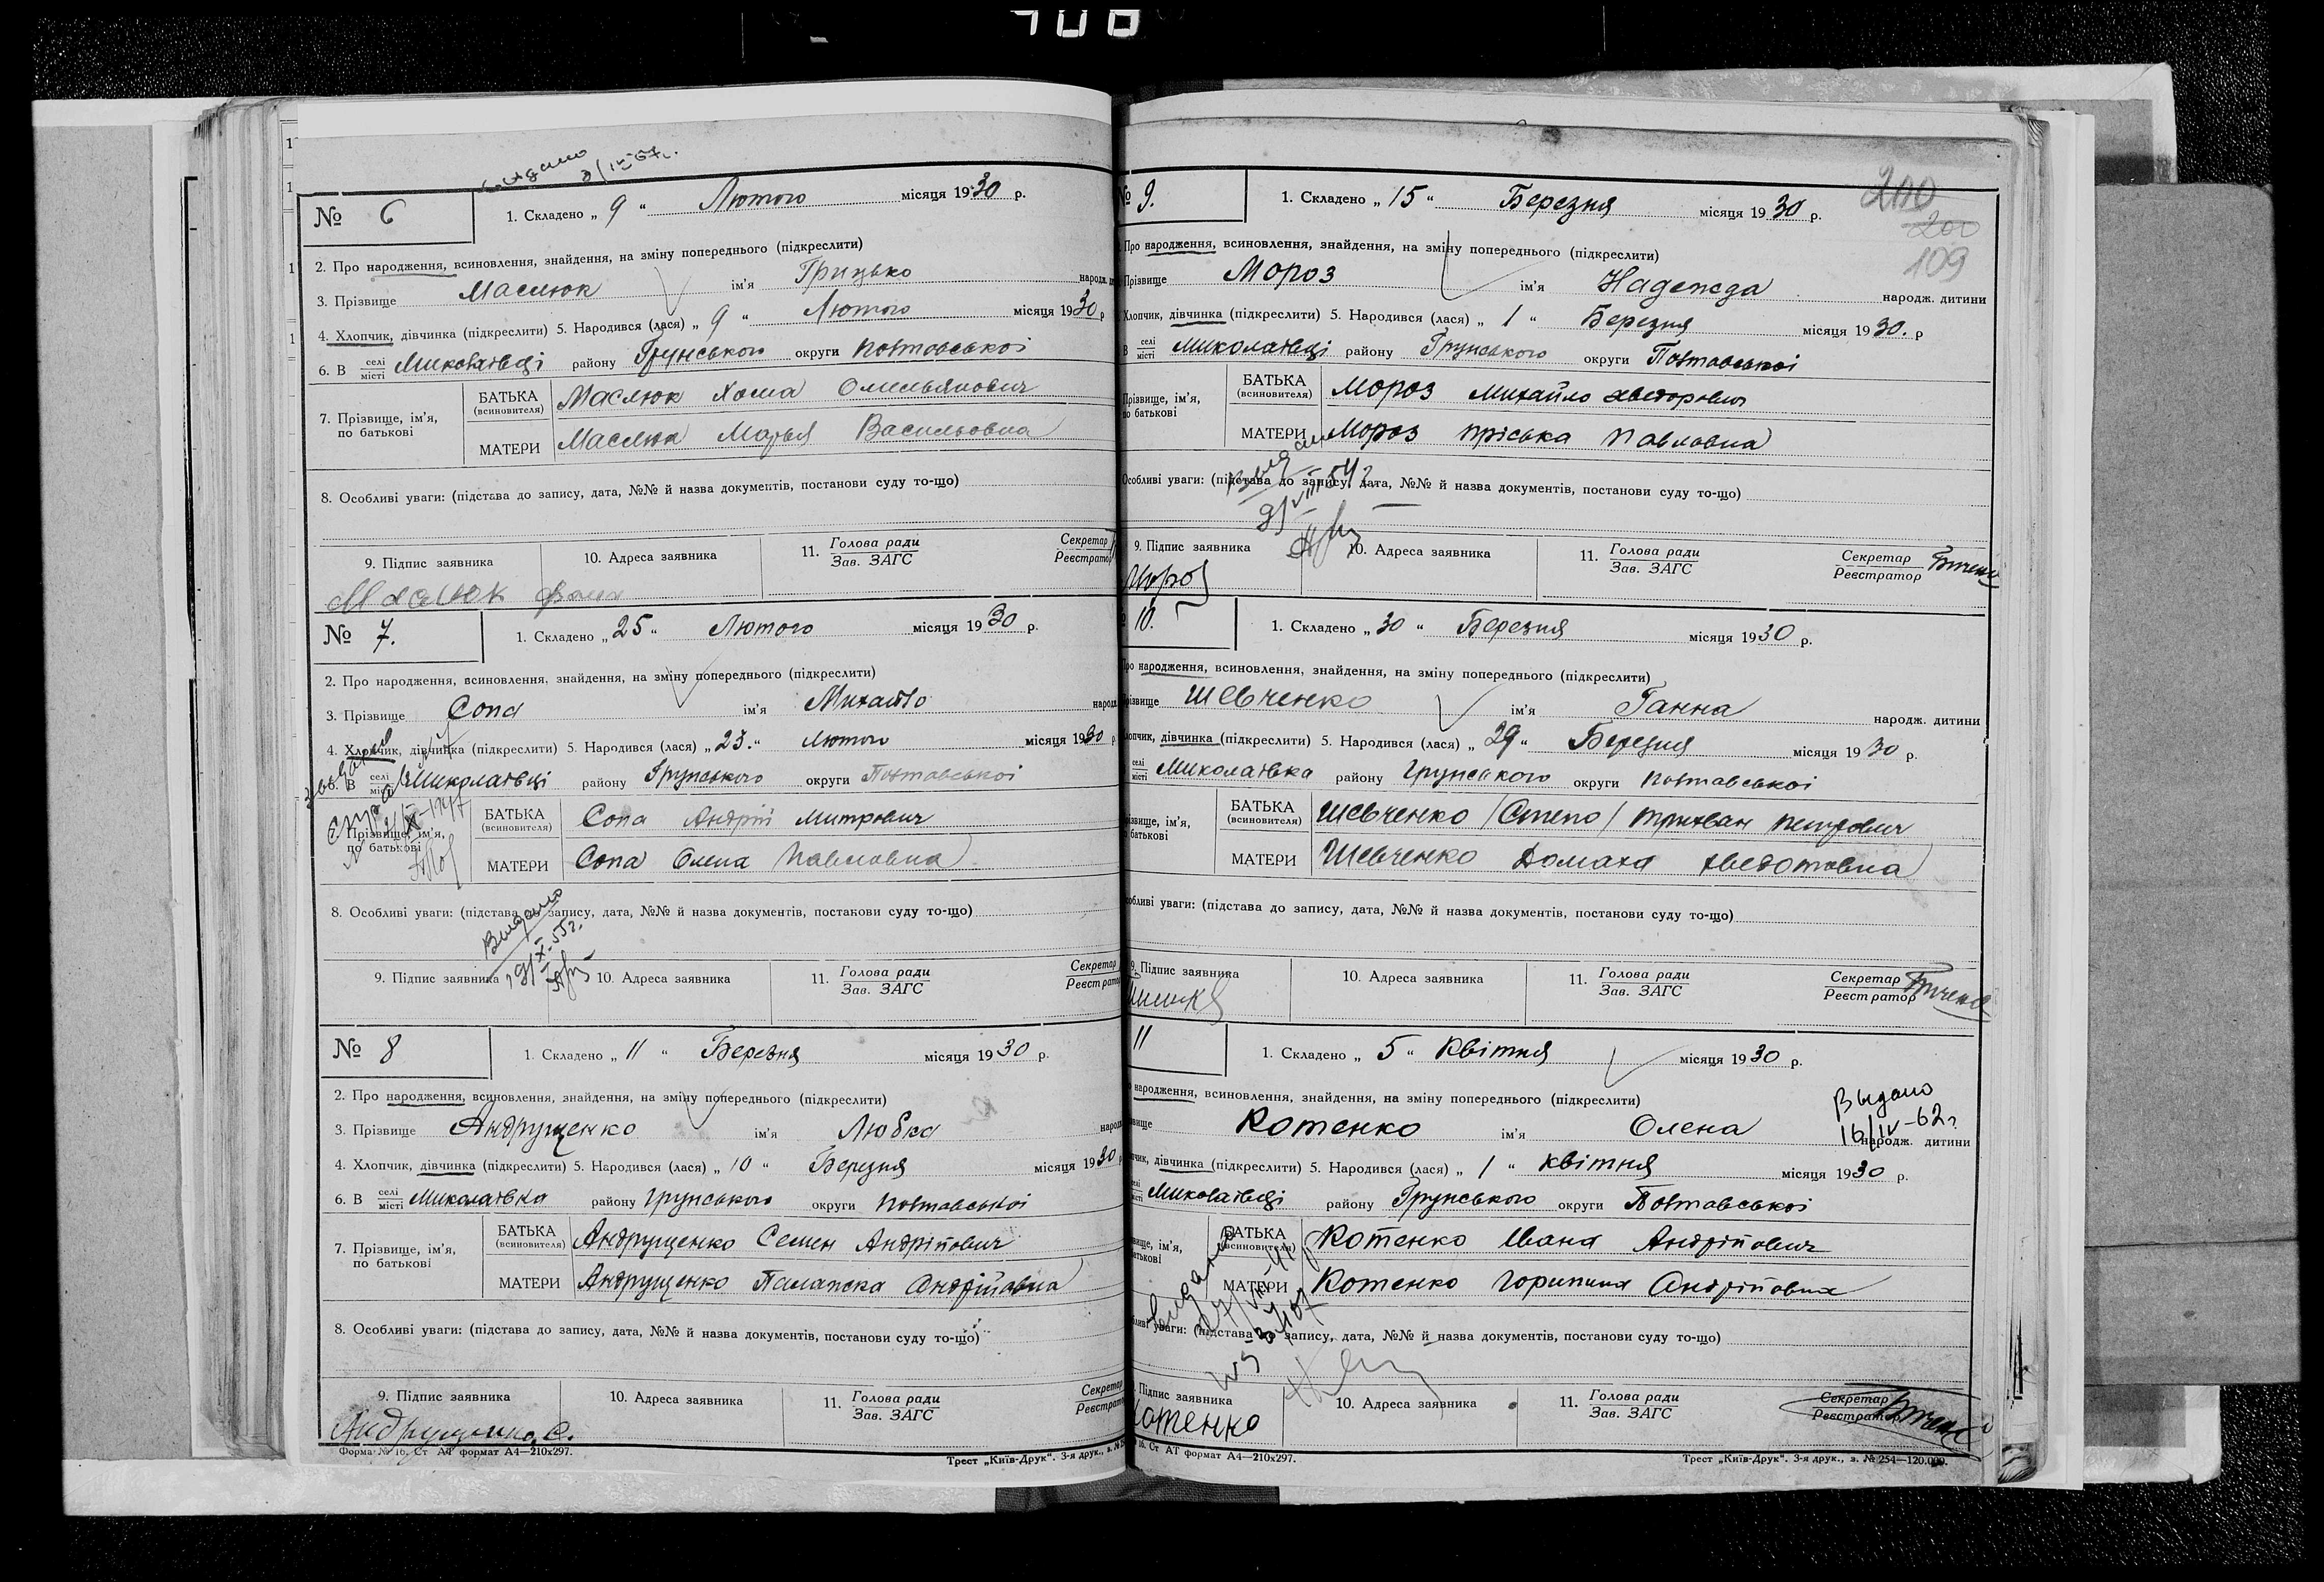 № 6
1. Складено „ 9 “ Лютого місяця 1930 р.
2. Про народження, всиновлення, знайдення, на зміну попереднього (підкреслити)
3. Прізвище Маслюк ім'я Грицько народж.
4. Хлопчик, дівчинка (підкреслити) 5. Народився (лася) „ 9 “ Лютого місяця 1930 р
6. В селі місті Миколаївці району Грунського округи Полтавської
7. Прізвище, ім'я, по батькові
БАТЬКА (всиновителя) Маслюк Хома Омельянович
МАТЕРИ Маслюк Марья Васильовна
8. Особливі уваги: (підстава до запису, дата, №№ й назва документів, постанови суду то-що)
9. Підпис заявника 10. Адреса заявника 11. Голова ради Зав. ЗАГС Секретар Реєстратор
Маслюк Фома
№ 7.
1. Складено „ 25 “ Лютого місяця 1930 р.
2. Про народження, всиновлення, знайдення, на зміну попереднього (підкреслити)
3. Прізвище Сопа ім'я Михайло народ
4. Хлопчик, дівчинка (підкреслити) 5. Народився (лася) „ 23. “ Лютого місяця 1930 р
6. В селі місті Миколаївці району Грунського округи Полтавської
Прізвище, ім'я, по батькові
БАТЬКА (всиновителя) Сопа Андрій Митрович
МАТЕРИ Сопа Олена Павловна
8. Особливі уваги: (підстава до запису, дата, №№ й назва документів, постанови суду то-що)
Выдано
9. Підпис заявника 10. Адреса заявника 11. Голова ради Зав. ЗАГС Секретар Реєстратор
№ 8
1. Складено „ 11 “ Березня місяця 1930 р.
2. Про народження, всиновлення, знайдення, на зміну попереднього (підкреслити)
3. Прізвище Андрущенко ім'я Любка народ
4. Хлопчик, дівчинка (підкреслити) 5. Народився (лася) „ 10 “ Березня місяця 1930 р
6. В селі місті Миколаївка району Грунського округи Полтавської
7. Прізвище, ім'я, по батькові
БАТЬКА (всиновителя) Андрущенко Семен Андрійович
МАТЕРИ Андрущенко Палажка Андрійовна
8. Особливі уваги: (підстава до запису, дата, №№ й назва документів, постанови суду то-що)
9. Підпис заявника 10. Адреса заявника 11. Голова ради Зав. ЗАГС Секретар Реєстратор
Андрущенко С.
Форма № 16, Ст АТ формат А4—210х297.
Трест „Київ-Друк“. 3-я друк., з. №
№ 9.
1. Складено „ 15 “ Березня місяця 1930 р.
200
200
109
Про народження, всиновлення, знайдення, на зміну попереднього (підкреслити)
Прізвище Мороз ім'я Надежда народж. дитини
Хлопчик, дівчинка (підкреслити) 5. Народився (лася) „ 1 “ Березня місяця 1930. р
В селі місті Миколаївці району Грунського округи Полтавської
Прізвище, ім'я, по батькові
БАТЬКА (всиновителя) Мороз Михайло Хведорович
МАТЕРИ Мороз Пріська Павловна
Особливі уваги: (підстава до запису, дата, №№ й назва документів, постанови суду то-що)
9. Підпис заявника 10. Адреса заявника 11. Голова ради Зав. ЗАГС Секретар Реєстратор
Мороз
10.
1. Складено „ 30 “ Березня місяця 1930 р.
Про народження, всиновлення, знайдення, на зміну попереднього (підкреслити)
Прізвище Шевченко ім'я Ганна народж. дитини
Хлопчик, дівчинка (підкреслити) 5. Народився (лася) „ 29 “ Березня місяця 1930 р.
селі місті Миколаївка району Грунського округи Полтавської
Прізвище, ім'я, по батькові
БАТЬКА (всиновителя) Шевченко
МАТЕРИ Шевченко Домаха Хведотовна
Особливі уваги: (підстава до запису, дата, №№ й назва документів, постанови суду то-що)
9. Підпис заявника 10. Адреса заявника 11. Голова ради Зав. ЗАГС Секретар Реєстратор
11
1. Складено „ 5 “ Квітня місяця 1930 р.
народження, всиновлення, знайдення, на зміну попереднього (підкреслити)
Выдано
16/IV-62г.
Котенко ім'я Олена народж. дитини
дівчинка (підкреслити) 5. Народився (лася) „ 1 “ Квітня місяця 1930 р.
селі місті Миколаївці району Грунського округи Полтавської
БАТЬКА (всиновителя) Котенко Івана Андрійович
МАТЕРИ Котенко Горпина Андрійовна
уваги: (підстава до запису, дата, №№ й назва документів, постанови суду то-що)
Підпис заявника 10. Адреса заявника 11. Голова ради Зав. ЗАГС Секретар Реєстратор
Котенко
16. Ст АТ формат А4—210х297.
Трест „Київ-Друк“. 3-я друк., з. № 254—120.000.